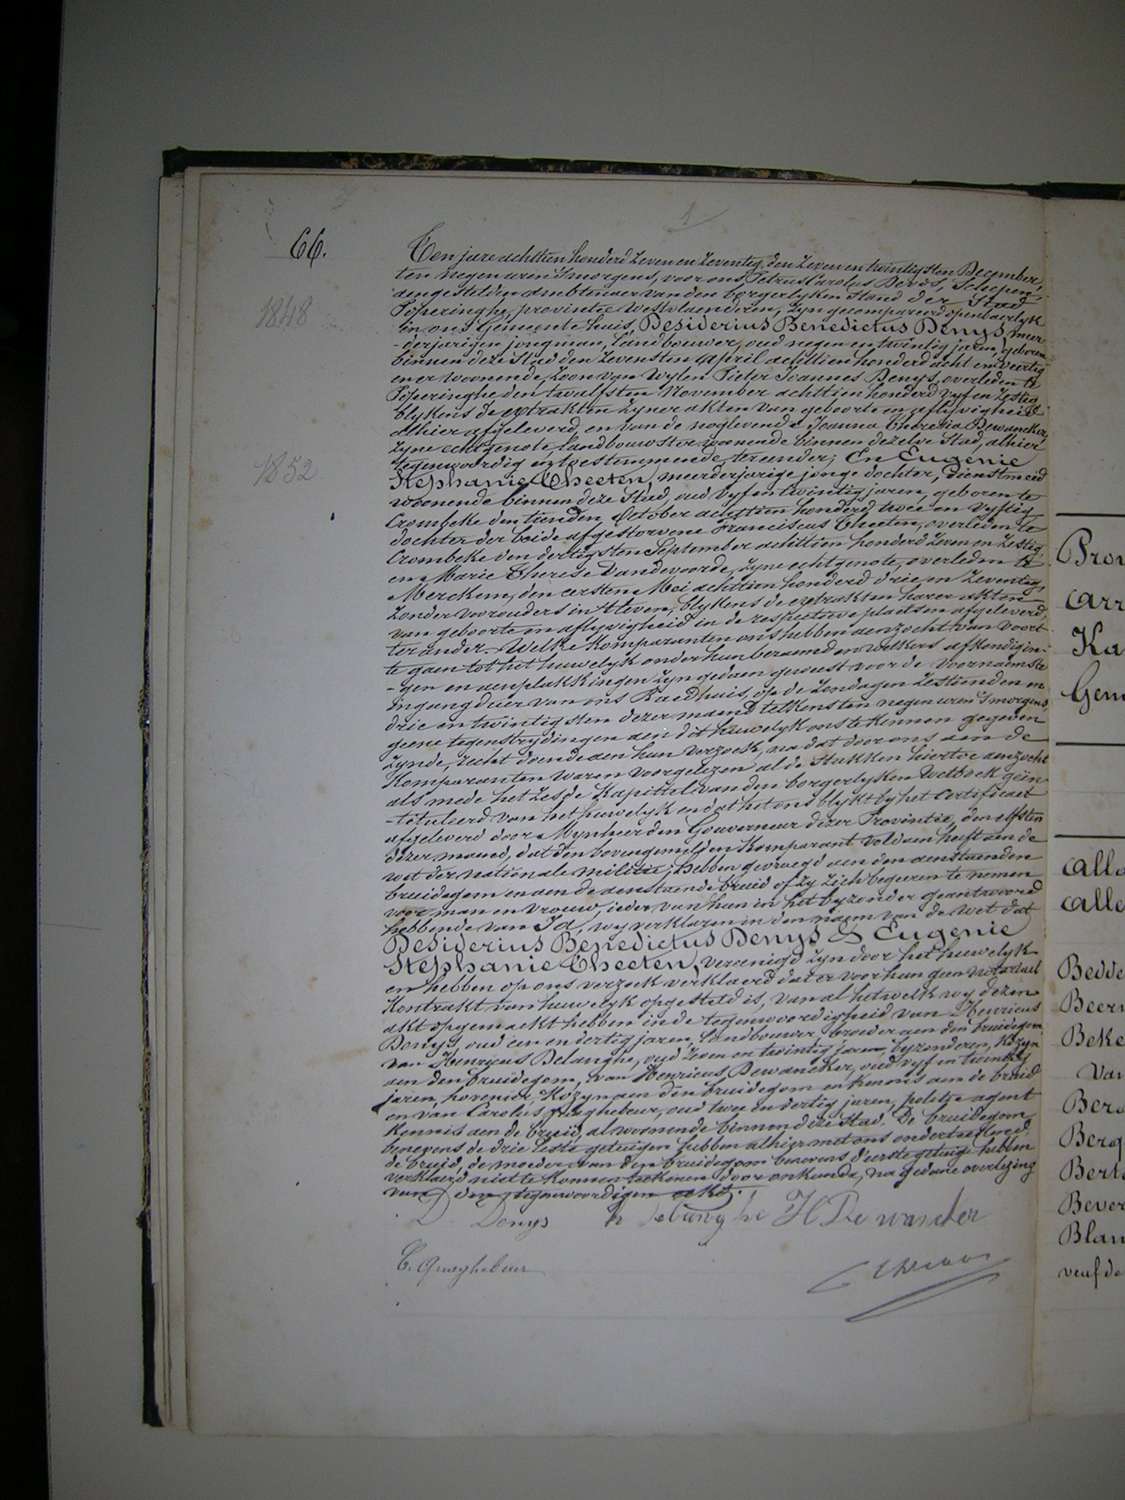 1
66.
Ten jare achttien honderd zeven en zeventig, den zeven en twintigsten December,
ten negen uren 's morgens, voor ons, Petrus Carolus Devos, Schepen,
aengestelden ambtenaer van den borgerlyken Stand der Stad
Poperinghe, provintie Westvlaenderen, zyn gecompareerd openbaerlyk
1848
in ons Gemeente huis, Desiderius Benedictus Denys, meer-
-derjarigen jongman, landbouwer, oud negen en twintig jaren, geboren
binnen deze Stad den zevensten April achttien honderd acht en veertig
en er woonende, zoon van wylen Pieter Joannes Denys, overleden te
Poperinghe den twaelfsten November achttien honderd vyf en zestig
blykens de extrakten zyner akten van geboorte en aflyvigheid
alhier afgeleverd, en van de noglevende Joanna Theresia Dewancker,
zyne echtgenote, landbouwster woonende binnen dezelve Stad, alhier
tegenwoordig en toestemmende ten eender; En Eugenie
1852
Stephanie Theeten, meerderjarige jonge dochter, dienstmeid
woonende binnen deze Stad, oud vyf en twintig jaren, geboren te
Crombeke den tienden October achttien honderd twee en vyftig
dochter der beide afgestorvene Franciscus Theeten, overleden te
Crombeke den dertigsten September achttien honderd zeven en zestig,
en Marie Therese Vandevoorde, zyne echtgenote, overleden te
Merckem, den eersten Mei achttien honderd drie en zeventig,
zonder voorouders in 't leven, blykens de extrakten harer akten
van geboorte en aflyvigheid in de respectieve plaetsen afgeleverd,
ter ander. Welke Komparanten ons hebben aenzocht van voort
te gaen tot het huwelyk onder hun beraemd en welkers afkondigin-
-gen en aenplakkingen zyn gedaen geweest voor de voornaemste
Ingang deur van ons Raedhuis, op de zondagen zestienden en
drie en twintigsten dezer maend telkens ten negen uren 's morgens
geene tegenstrydingen aen dit huwelyk ons te kennen gegeven
zynde, recht doende aen hun verzoek, na dat door ons aen de
Komparanten waren voorgelezen al de Stukken hiertoe aenzocht
als mede het zesde Kapittel van den borgerlyken Wetboek geïn-
-tituleerd van het huwelyk en dat het ons blykt by het Certificaet
afgeleverd door Mynheer den Gouverneur dezer Provintie, den elfsten
dezer maend, dat den bovengemelden Komparant voldaen heeft aen de
wet der nationale militie, hebben gevraegd aen den aenstaenden
bruidegom en aen de aenstaende bruid of zy zich begeeren te nemen
voor man en vrouw, ieder van hun in het byzonder geantwoord
hebbende van Ja, wy verklaren in den naem van de wet dat
Desiderius Benedictus Denys & Eugenie
Stephanie Theeten, vereenigd zyn door het huwelyk
en hebben op ons verzoek verklaerd dat er voor hun geen notariaal
Kontrakt van huwelyk opgesteld is, van al hetwelk wy dezen
akt opgemaekt hebben in de tegenwoordigheid van Henricus
Denys, oud een en dertig jaren, landbouwer, broeder aen den bruidegom
van Henricus Delanghe, oud zeven en twintig jaren, byzonderen, Kozyn
aen den bruidegom, van Henricus Dewancker, oud vyf en twintig
jaren, hovenier, Kozyn aen den bruidegom en kennis aen de bruid
en van Carolus Quaghebeur, oud twee en dertig jaren, politje agent
Kennis aen de bruid, al woonende binnen deze Stad. De bruidegom
benevens de drie leste getuigen hebben alhier met ons onderteekend,
de bruid, de moeder van den bruidegom benevens d'eerste getuige hebben
verklaerd niet te konnen teekenen door onkunde, na gedane overlezing
van den tegenwoordigen akt.
D Denys h Delang he H De wancker
C. Quaghebeur
Prov
arr
Ka
Gem
Alla
Alle
Bedde
Beern
Beke
Van
Bero
Berq
Berte
Bever
Blan
veuf de